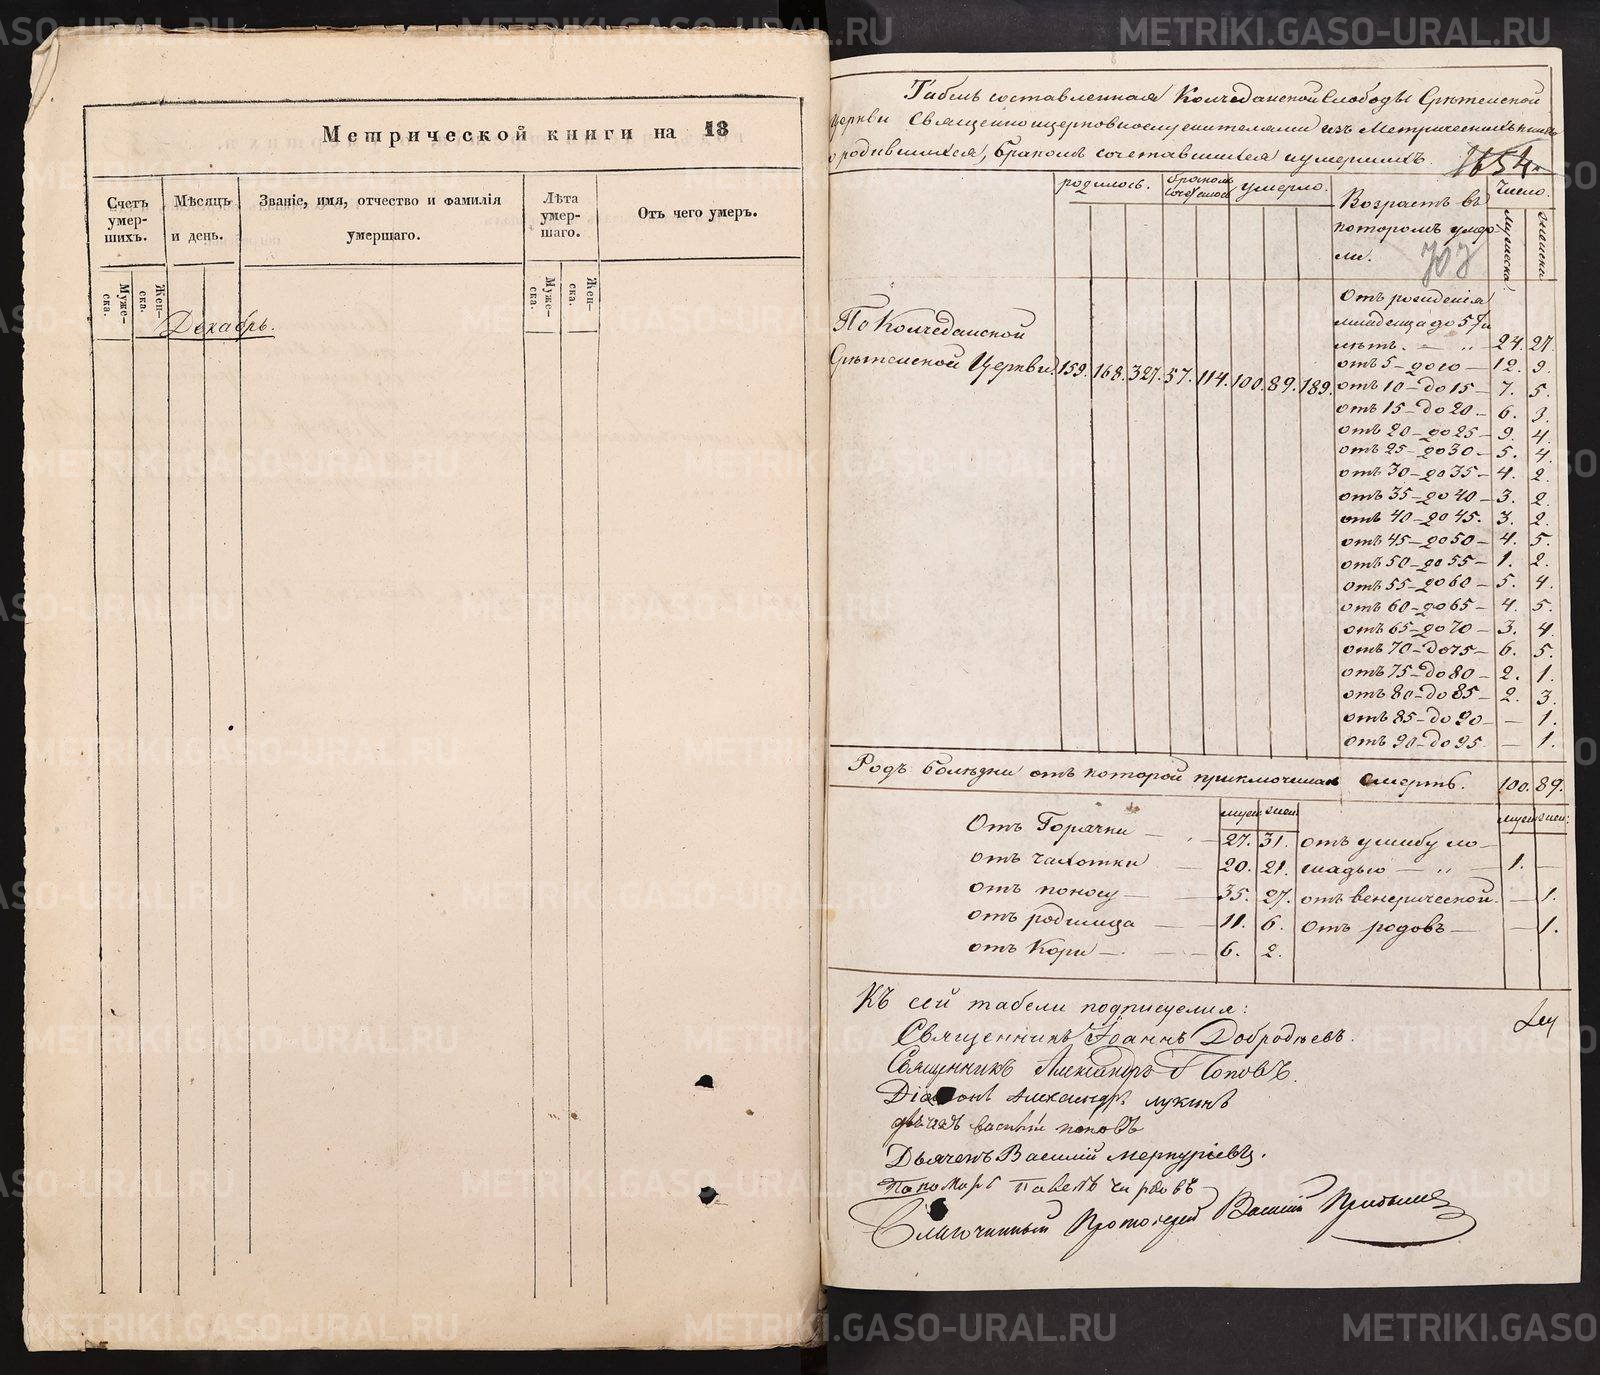 Метрической книги на 18
Счетъ умер-шихъ.
Мѣсяцъ и день.
Званіе, имя, отчество и фамилія умершаго.
Лѣта умер-шаго.
Отъ чего умеръ.
Муже-ска.
Жен-ска.
Муже-ска.
Жен-ска.
Декабрь.
Табель составленная Колчеданской Слободы Срѣтенской
Церкви Священноцерковнослужителями изъ Метрической книги
о родившихся, бракомъ сочетавшихся и умершихъ.
1654
родилось.
бракомъ
умерло.
Возрастъ въ
которомъ умер-
ли.
число.
мужеска
женска
707
По Колчеданской
Срѣтенской Церкви. 159. 168. 327. 57. 114. 100. 89. 189.
Отъ рожденія
младенца до 5 ти
лѣтъ. — „ — 24. 27.
отъ 5 — до 10 — 12. 9.
отъ 10 — до 15 — 7. 5.
отъ 15 — до 20 — 6. 3.
отъ 20 — до 25 — 9. 4.
отъ 25 — до 30 — 5. 4.
отъ 30 — до 35 — 4. 2.
отъ 35 — до 40 — 3. 2.
отъ 40 — до 45. 3. 2.
отъ 45 — до 50 — 4. 5.
отъ 50 — до 55 — 1. 2.
отъ 55 — до 60 — 5. 4.
отъ 60 — до 65 — 4. 5.
отъ 65 — до 70 — 3. 4.
отъ 70 — до 75 — 6. 5.
отъ 75 — до 80 — 2. 1.
отъ 80 — до 85 — 2. 3.
отъ 85 — до 90 — — 1.
отъ 90 — до 95 — 1.
Родъ болѣзни отъ которой приключилась смерть. 100. 89.
муж. жен. муж: жен:
Отъ Горячки — 27. 31. отъ ушибу ло-
отъ чахотки — 20. 21. шадью — „ — 1. —
отъ поносу — 35. 27. отъ венерической. — 1.
отъ родимца — 11. 6. отъ родовъ — — 1.
отъ Кори — 6. 2.
Къ сей табели подписуемся:
Священникъ Іоаннъ Добродѣевъ.
Священникъ Александръ Поповъ.
Діаконъ Александръ Лукинъ
дьячекъ Василій Поповъ
Дьячекъ Василій Меркурьевъ.
Пономарь Павелъ
Благочинный Протоіерей Василій
METRIKI.GASO-URAL.RU